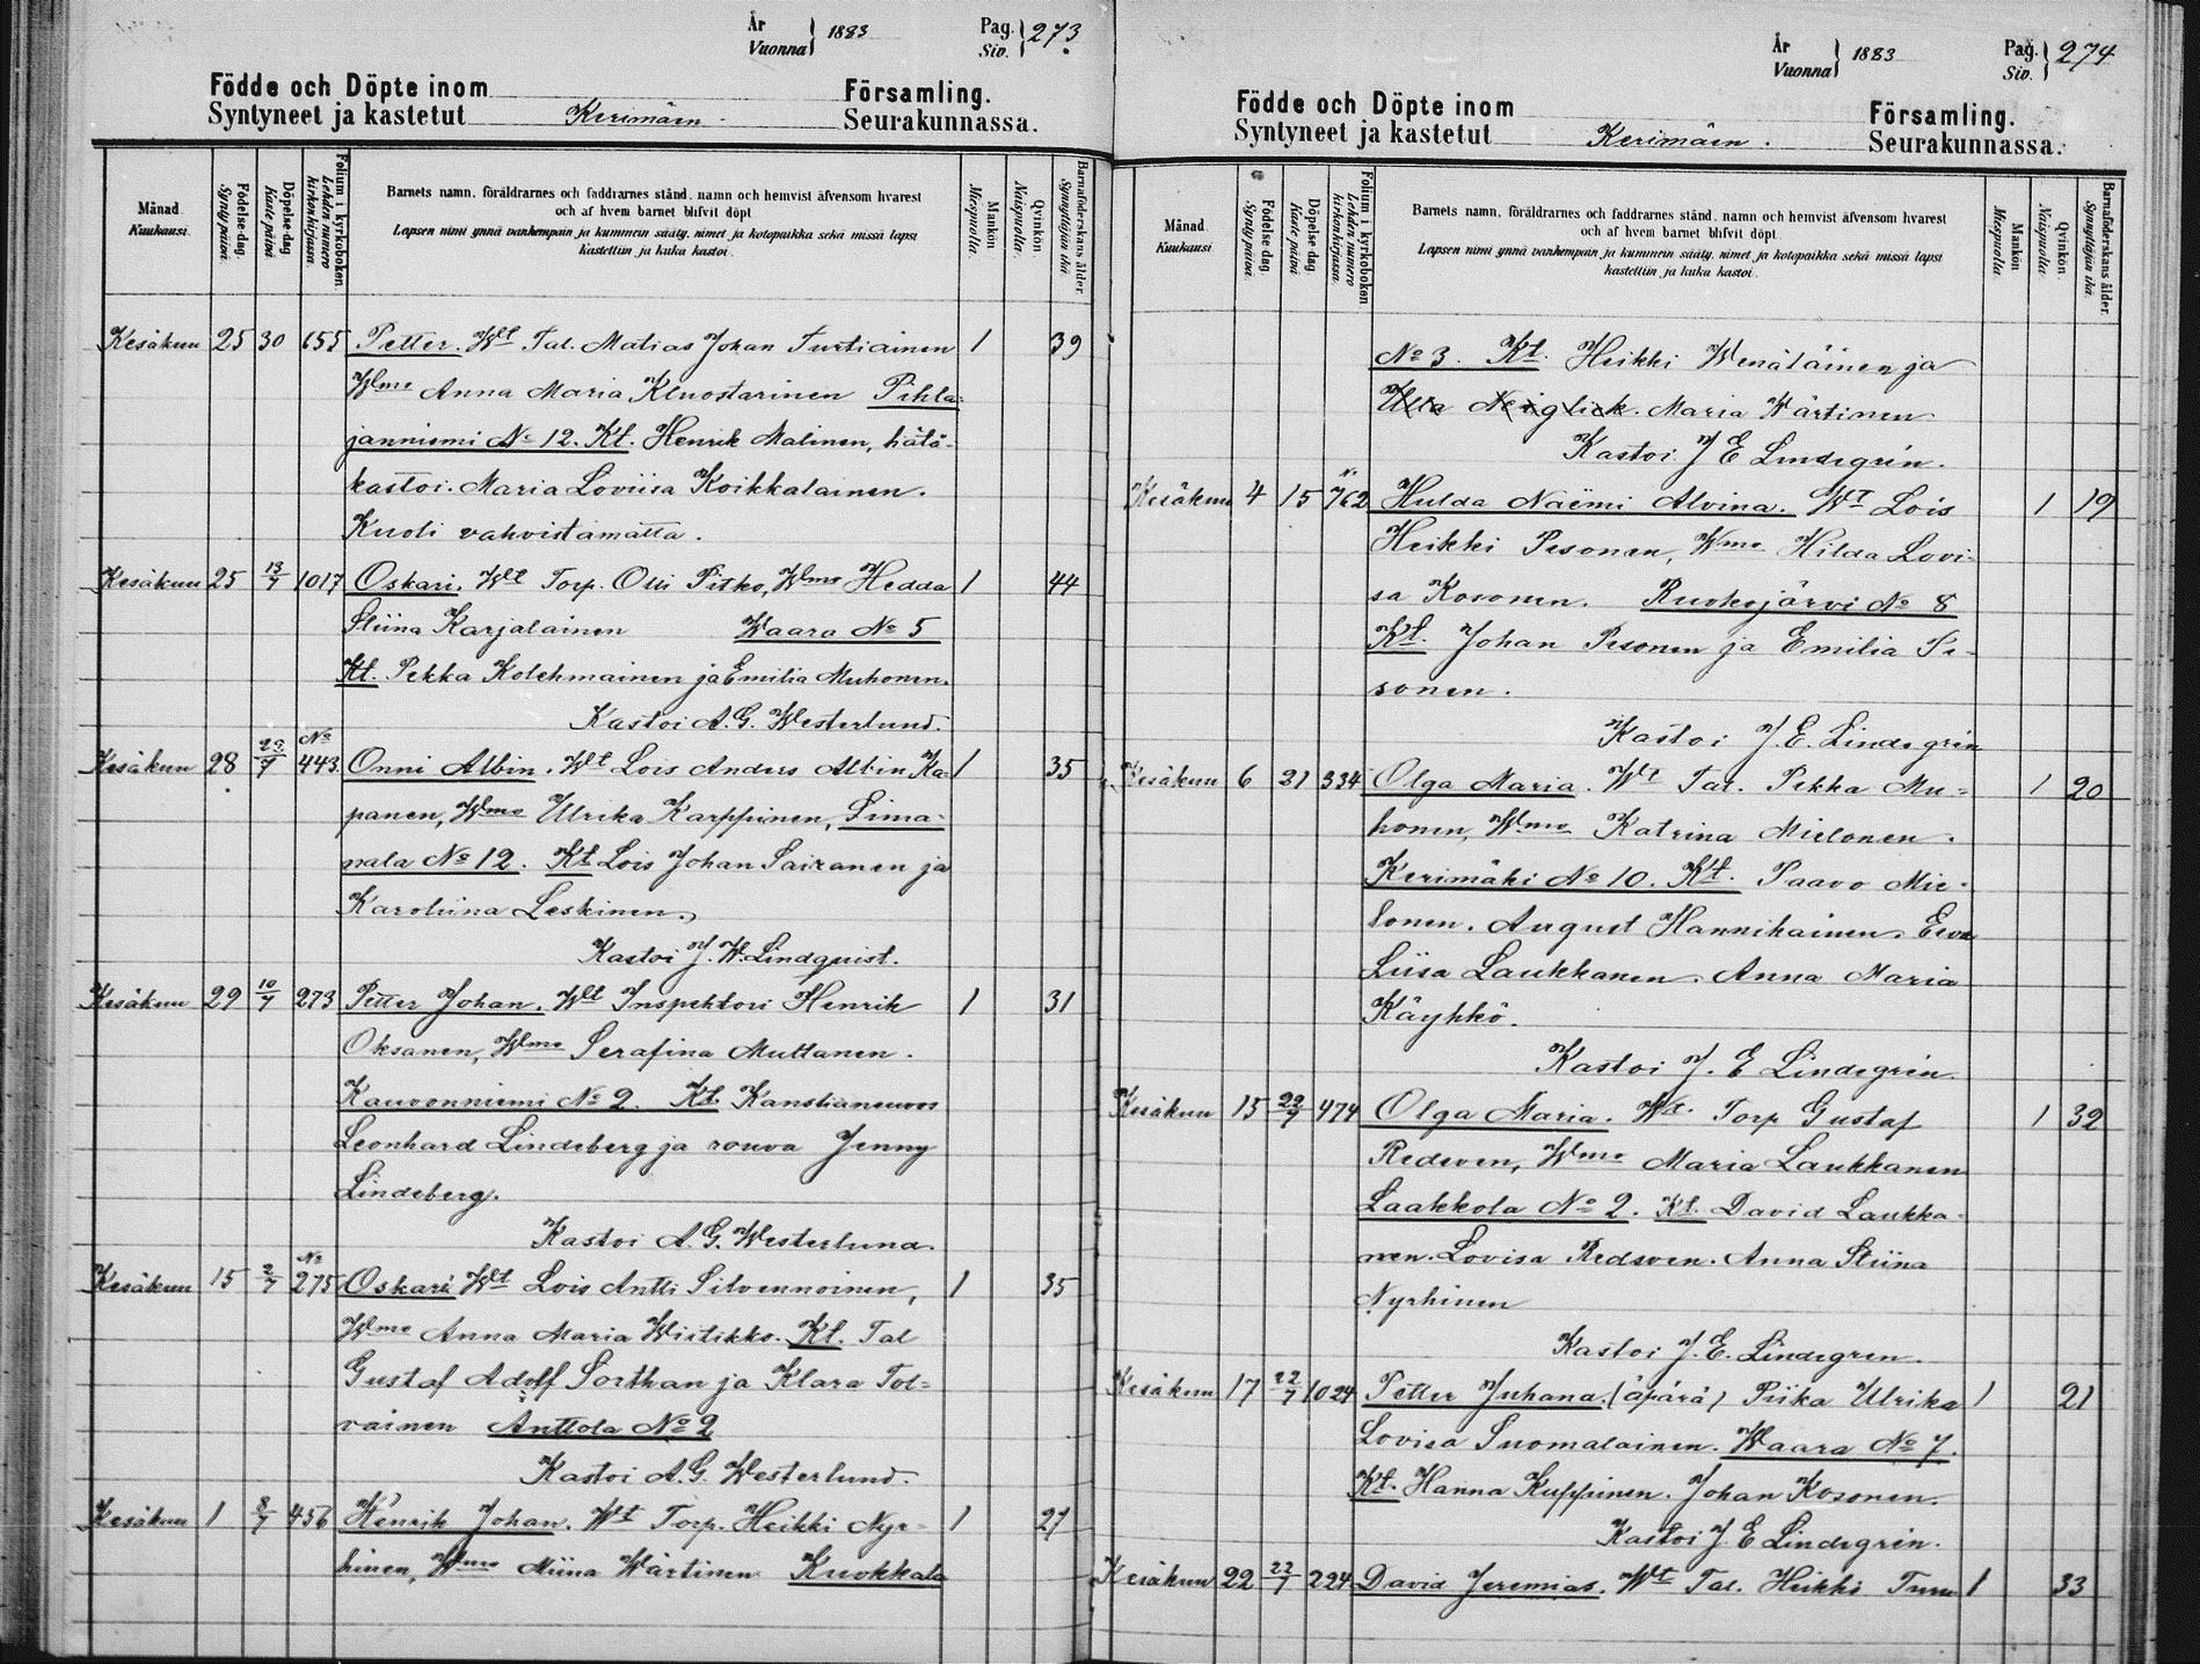 År
Vuonna } 1883 Pag.
Siv. } 273
Födde och Döpte inom Församling.
Syntyneet ja kastetut Kerimäen Seurakunnassa.
Månad
Kuukausi
Födelse dag.
Synty päivä.
Döpelse dag
Kaste päivä
Folium i kyrkoboken
Lehden numero
kirkonkirjassa.
Barnets namn, föräldrarnes och faddrarnes stånd, namn och hemvist äfvensom hvarest
och af hvem barnet blifvit döpt
Lapsen nimi ynnä vanhempain ja kummein sääty, nimet ja kotopaikka sekä missä lapsi
kastettiin ja kuka kastoi.
Mankön
Miespuolta.
Qvinkön
Naispuolta.
Barnaföderskans ålder.
Synnyttäjän ikä
Kesäkuu 25 30 655 Petter. Wt Tal. Matias Johan Turtiainen 1 39
Wmo Anna Maria Kluostarinen Pihla-
janniemi No 12. Kt. Henrik Malinen, hätä-
kastoi. Maria Loviisa Koikkalainen.
Kuoli vahvistamatta.
Kesäkuu 25 13/7 1017 Oskari. Wt Torp. Olli Pitko, Wmo Hedda 1 44
Stiina Karjalainen Waara No 5
Kt. Pekka Kolehmainen ja Emilia Muhonen.
Kastoi A. G. Westerlund.
Kesäkuu 28 29/7 No 443. Onni Albin. Wt Lois Anders Albin Ka- 1 35
panen, Wmo Ulrika Karppinen, Sima-
nala No 12. Kt Lois Johan Sairanen ja
Karoliina Leskinen.
Kastoi J. W. Lindquist.
Kesäkuu 29 10/7 273 Petter Johan. Wt Inspehtori Henrik 1 31
Oksanen, Wmo Serafina Muttanen.
Kauvonniemi No 2. Kt Kanslianeuvos
Leonhard Lindeberg ja rouva Jenny
Lindeberg.
Kastoi A. G. Westerlund.
Kesäkuu 15 2/7 No 275 Oskari Wt Lois Antti Silvennoinen, 1 35
Wmo Anna Maria Wiitikko. Kt. Tal
Gustaf Adolf Sorthan ja Klara Tol-
vainen Anttola No 2
Kastoi A. G. Westerlund.
Kesäkuu 1 8/7 456 Henrik Johan. Wt Torp. Heikki Nyr- 1 27
hinen, Wmo Miina Wärtinen Kuokkala
År
Vuonna } 1883 Pag.
Siv. } 274
Födde och Döpte inom Församling.
Syntyneet ja kastetut Kerimäen. Seurakunnassa.
Månad
Kuukausi
Födelse dag
Synty päivä.
Döpelse dag
Kaste päivä
Folium i kyrkoboken
Lehden numero
kirkonkirjassa.
Barnets namn, föräldrarnes och faddrarnes stånd, namn och hemvist äfvensom hvarest
och af hvem barnet blifvit döpt
Lapsen nimi ynnä vanhempain ja kummein sääty, nimet ja kotopaikka sekä missä lapsi
kastettiin ja kuka kastoi.
Mankön
Miespuolta
Qvinkön
Naispuolta.
Barnaföderskans ålder.
Synnyttäjän ikä
No 3. Kt. Heikki Wenäläinen ja
Ulla Neiglick. Maria Wärtinen
Kastoi J E Lindegrén.
Kesäkuu 4 15 N. 762 Hulda Naëmi Alvina. Wt Lois 1 19
Heikki Pesonen, Wmo Hilda Lovi-
sa Kosonen. Ruokojärvi No 8
Kt. Johan Pesonen ja Emilia Pe-
sonen.
Kastoi J. E. Lindegrén
Kesäkuu 6 21 334 Olga Maria. Wt Tal. Pekka Mu- 1 20
honen, Wmo Katrina Mielonen.
Kerimäki No 10. Kt. Paavo Mie-
lonen. August Hannikainen. Eeva
Liisa Laukkanen. Anna Maria
Käyhkö.
Kastoi J. E Lindegrén.
Kesäkuu 15 22/7 474 Olga Maria. Wt. Torp Gustaf 1 32
Redsven, Wmo Maria Laukkanen
Laakkola No 2. Kt. David Laukka-
nen. Lovisa Redsven. Anna Stiina
Nyrhinen
Kastoi J. E. Lindegren.
Kesäkuu 17 22/7 1024 Petter Juhana. (äpärä) Piika Ulrika 1 21
Lovisa Suomalainen. Waara No 7.
Kt. Hanna Kuppinen. Johan Kosonen.
Kastoi J. E Lindegrén.
Kesäkuu 22 22/7 224 David Jeremias. Wt Tal. Heikki Turu 1 33